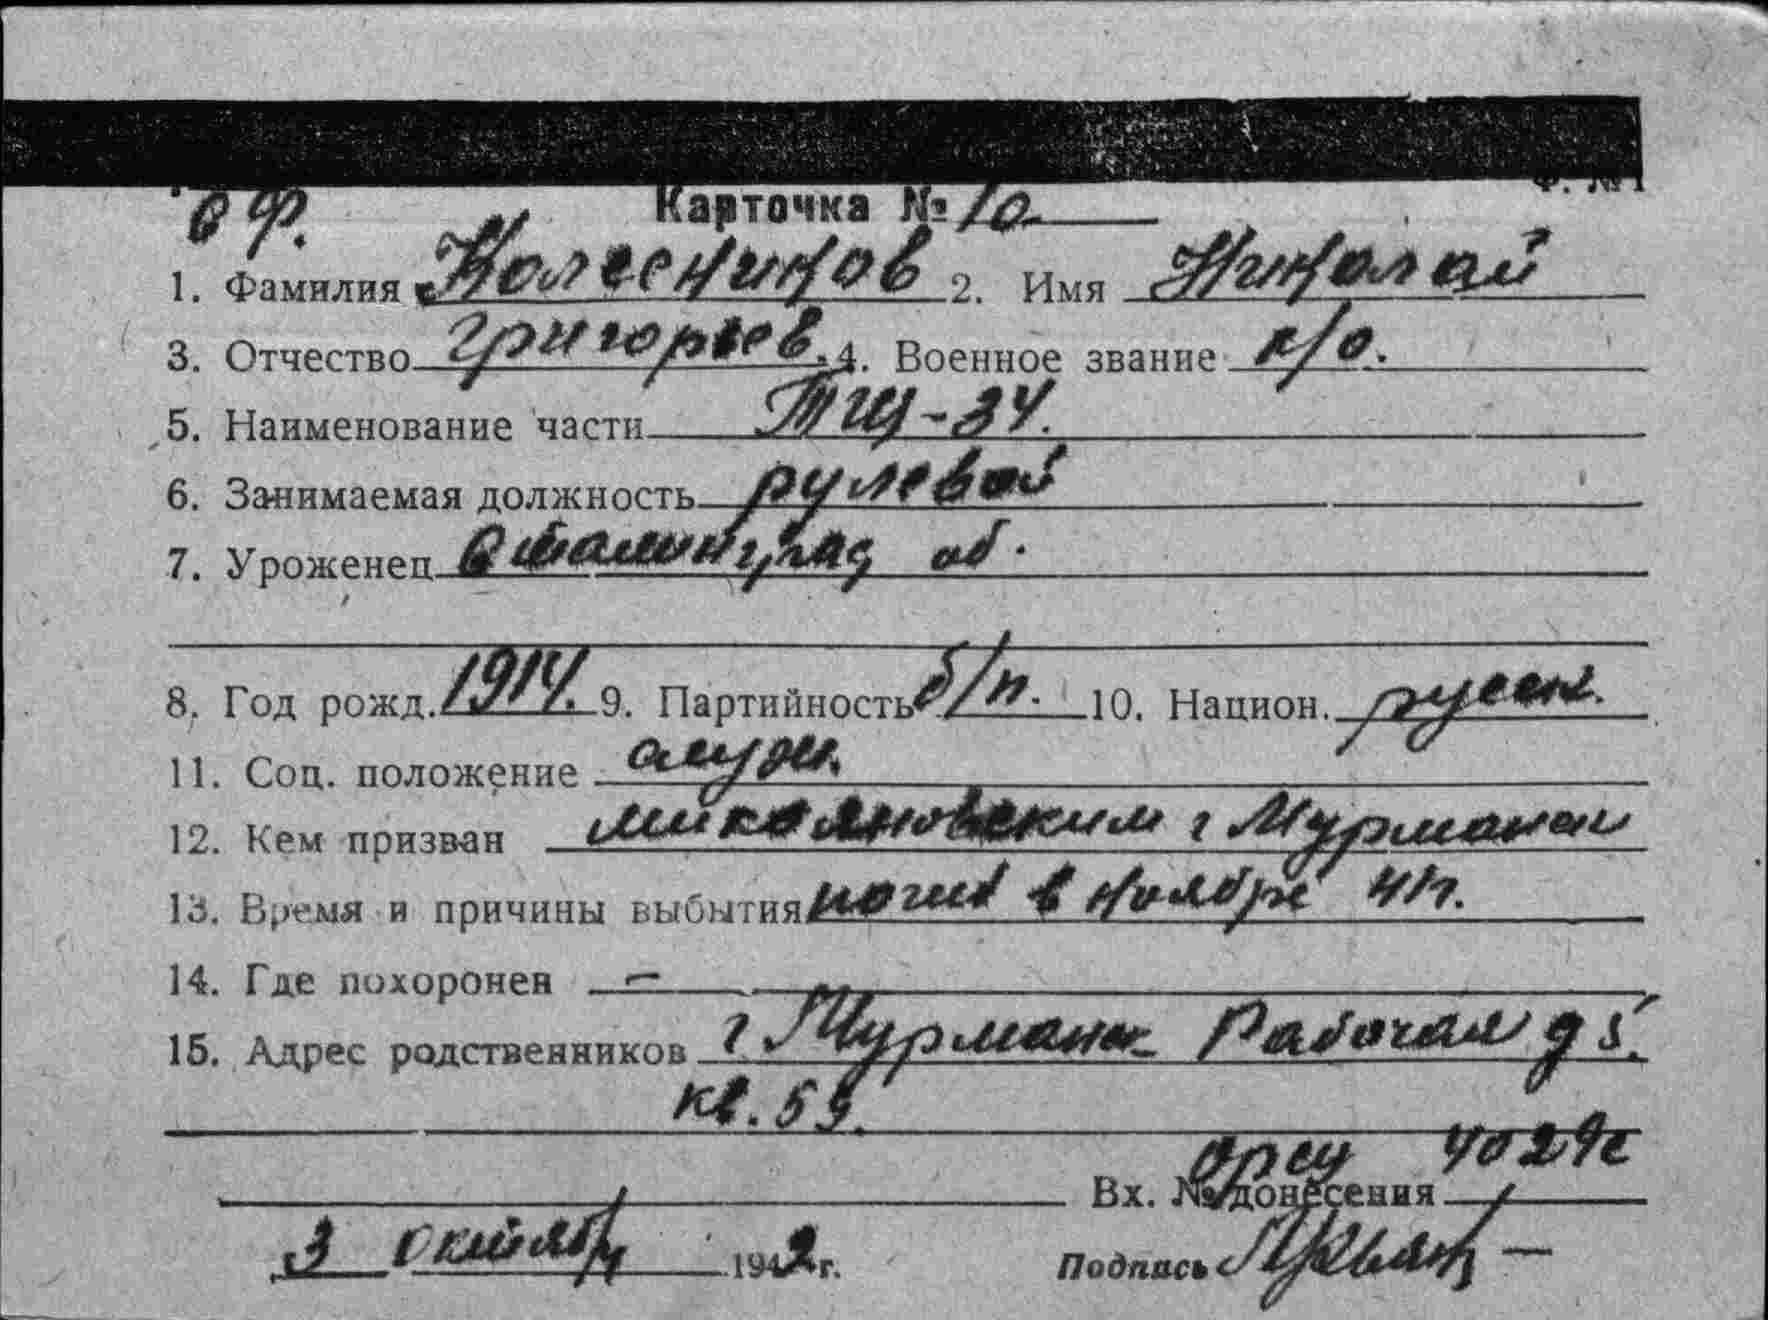 Ф. № 1
Карточка № 10
1. Фамилия Колесников 2. Имя Николай
3. Отчество Григорьев. 4. Военное звание к/о.
5. Наименование части ТЩ-34.
6. Занимаемая должность рулевой
7. Уроженец Сталинград об.
8. Год рожд. 1914. 9. Партийность б/п. 10. Национ. русск.
11. Соц. положение служ.
12. Кем призван Микояновским г Мурманск
13. Время и причины выбытия погиб в ноябре 41г.
14. Где похоронен —
15. Адрес родственников г Мурманск Рабочая д 5.
кв. 59.
4029с
Вх. № донесения
3 октября 1942 г.
Подпись